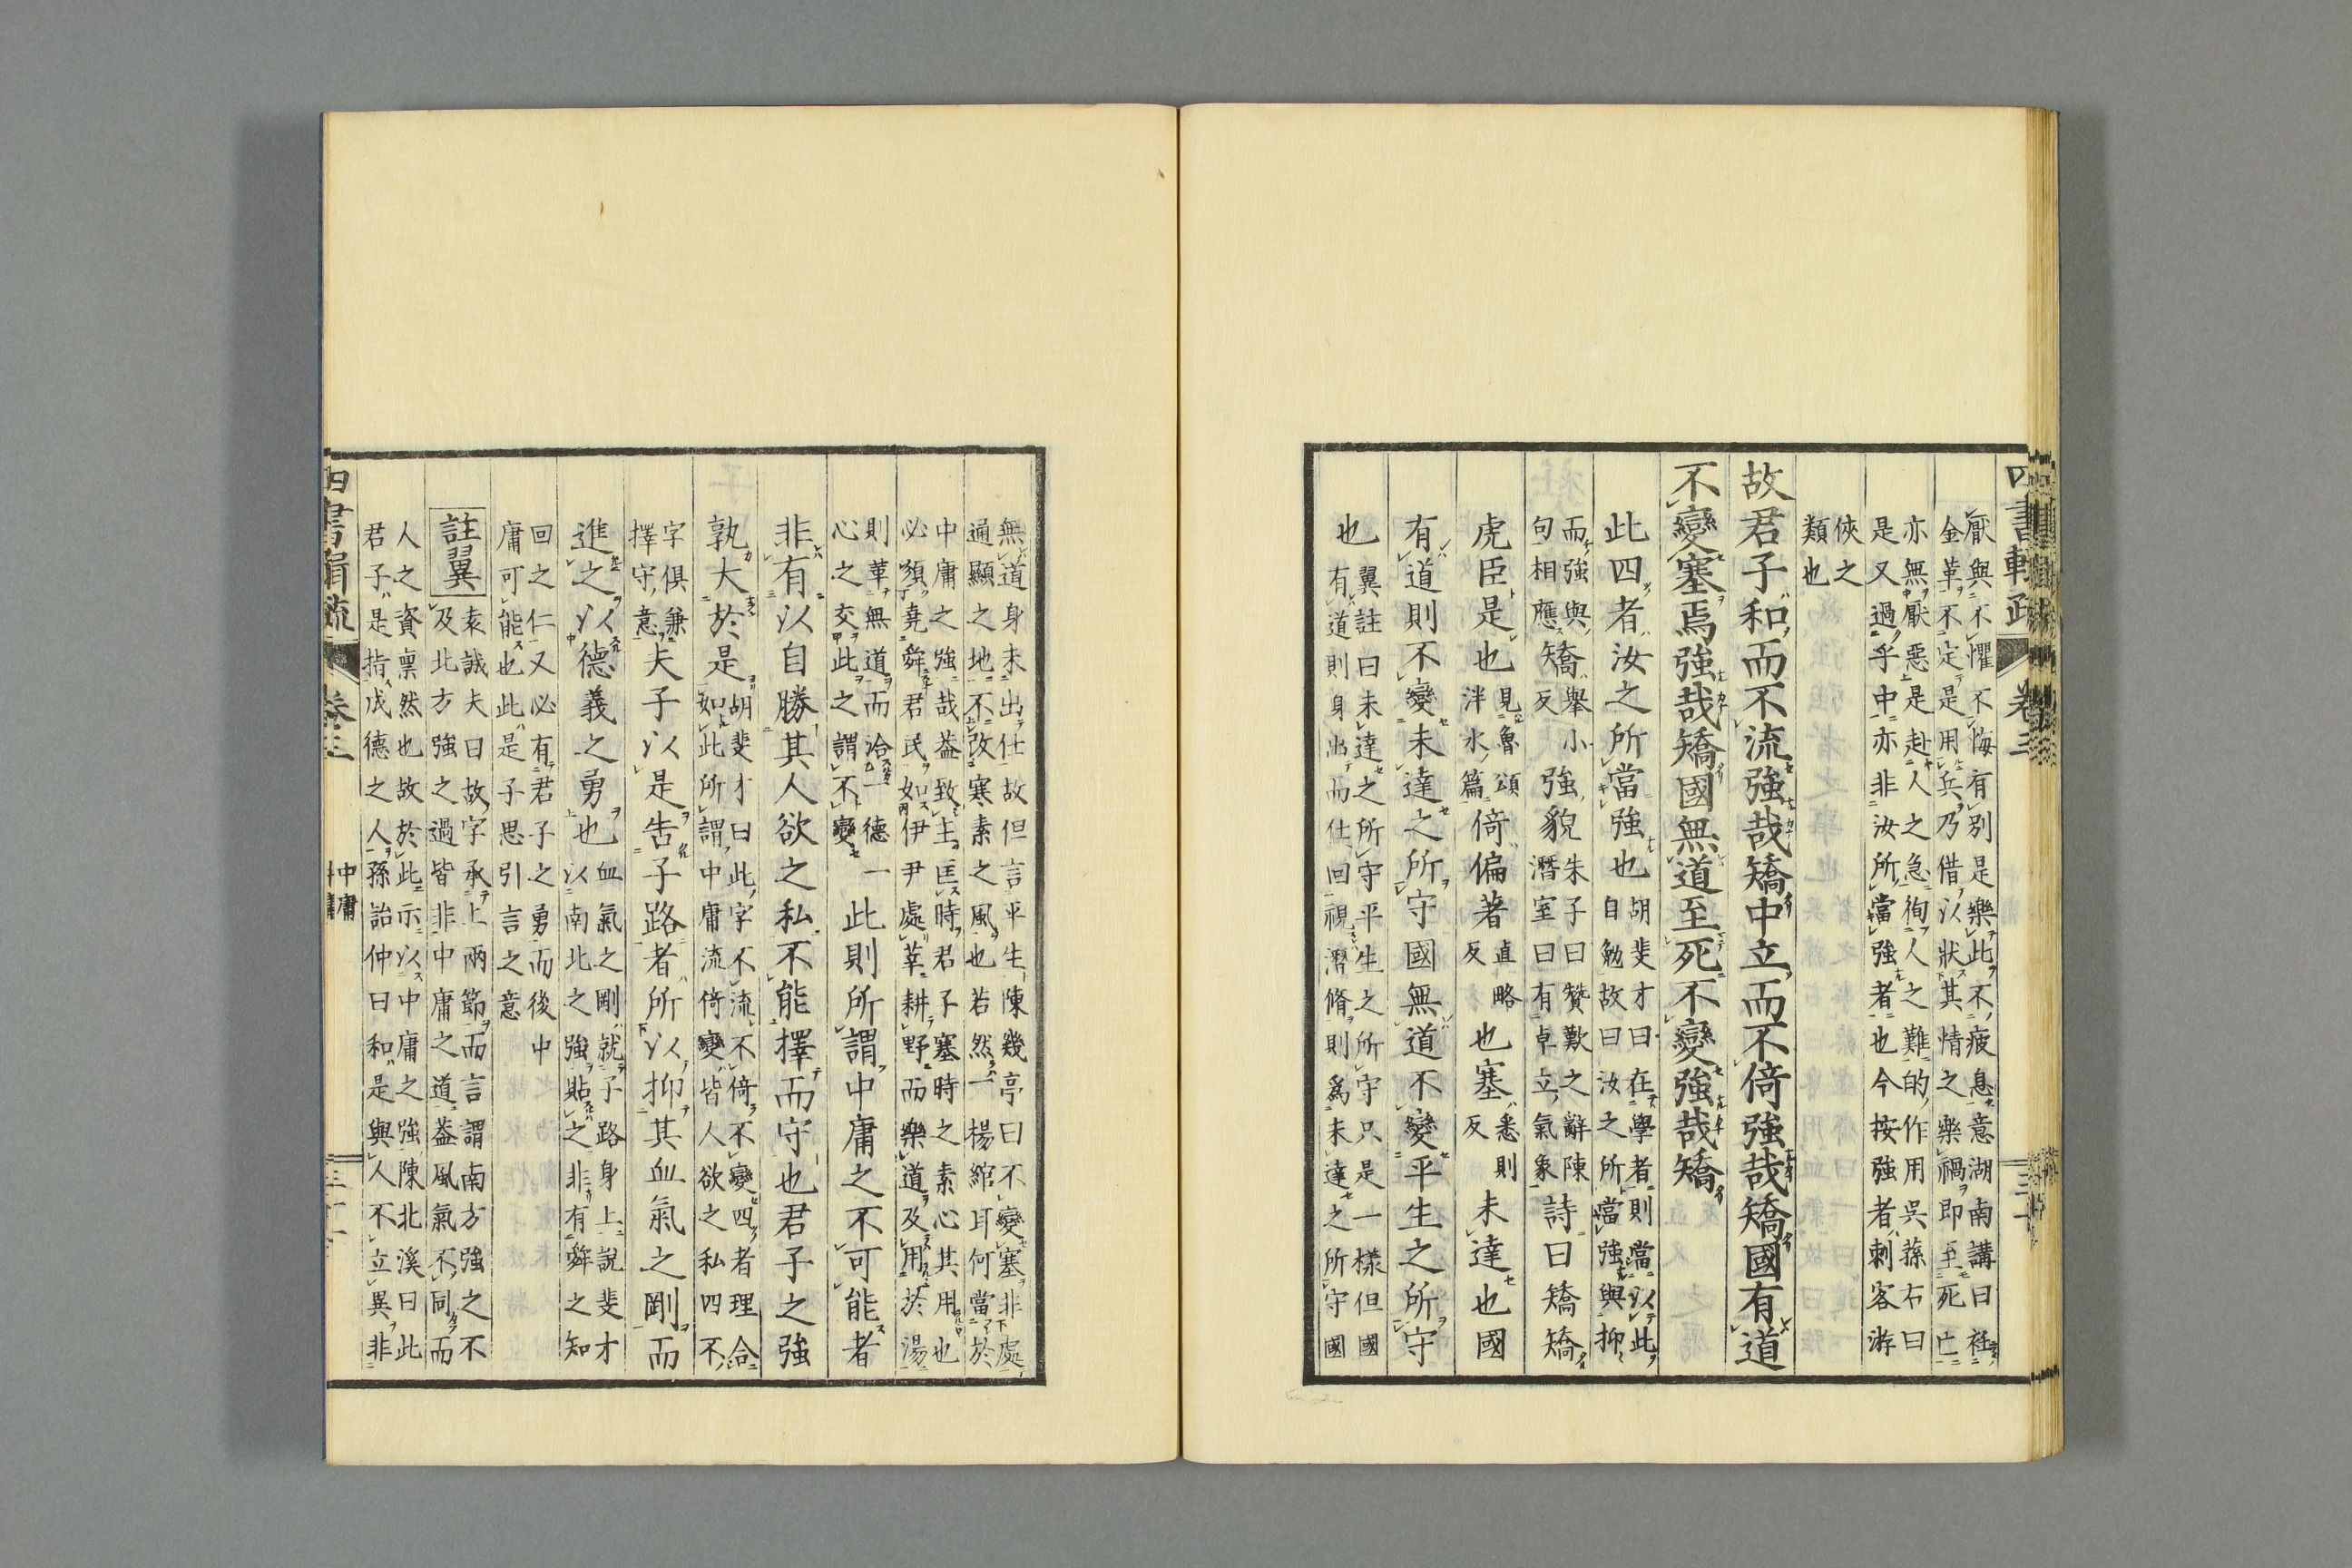 厭與不懼不悔有別是樂此不疲息意湖南講曰衽
金革不定是用兵乃借以狀其情之樂禍即至死亡
亦無厭惡是赴人之急徇人之難的作用呉蓀右曰
是又過乎中亦非汝所當強者也今按強者刺客游
俠之
類也
故君子和而不流強哉矯中立而不倚強哉矯國有道
不變塞焉強哉矯國無道至死不變強哉矯
此四者汝之所當強也 胡斐才曰在學者則當以此
自勉故曰汝之所當強與抑
而強與
句相應 矯 舉小
反 強貌 朱子曰贊歎之辭陳
潛室曰有卓立氣象 詩曰矯矯
虎臣是也 見魯頌
泮水篇 倚偏著 直略
反 也塞 悉則
反 未達也國
有道則不變未達之所守國無道不變平生之所守
也 翼註曰未達之所守平生之所守只是一樣但國
有道則身出而仕回視潛脩則爲未達之所守國
無道身未出仕故但言平生陳幾亭曰不變塞非處
通顯之地不改寒素之風也若然一楊綰耳何當於
中庸之強哉葢致主匡時君子塞時之素心其用也
必須堯舜君民如伊尹處莘耕野而樂道及用於湯
則革無道而洽一德一
心之交此之謂不變 此則所謂中庸之不可能者
非有以自勝其人欲之私不能擇而守也君子之強
孰大於是 胡斐才曰此字不流不倚不變四者理合
如此所謂中庸流倚變皆人欲之私四不
字俱兼
擇守意 夫子以是告子路者所以抑其血氣之剛而
進之以德義之勇也 血氣之剛就子路身上説斐才
以南北之強貼之非有舜之知
回之仁又必有君子之勇而後中
庸可能也此是子思引言之意
註翼 袁誠夫曰故字承上兩節而言謂南方強之不
及北方強之過皆非中庸之道葢風氣不同而
人之資禀然也故於此示以中庸之強陳北溪曰此
君子是指成德之人孫詒仲曰和是與人不立異非
卷三
中庸